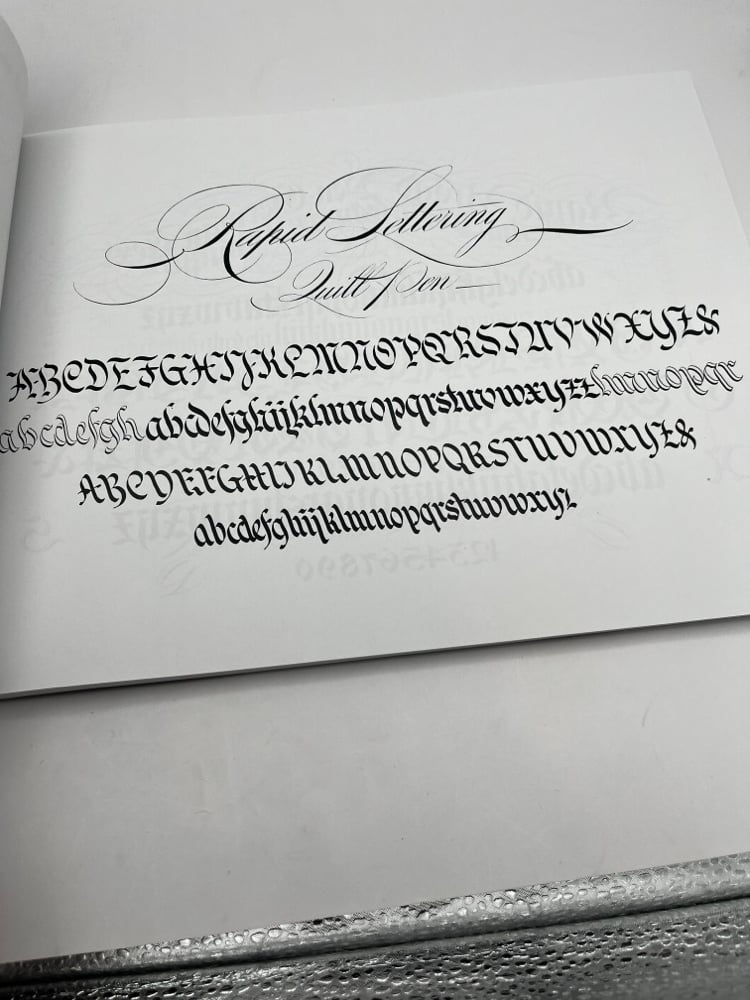 Rapid Lettering
Quill Pen
ABCDEFGHIJKLMNOPQRSTUVWXYZ&
abcdefgh abcdefghijklmnopqrstuvwxyzz lmnopqr
ABCDEFGHIJKLMNOPQRSTUVWXYZ&
abcdefghijklmnopqrstuvwxyz
1234567890